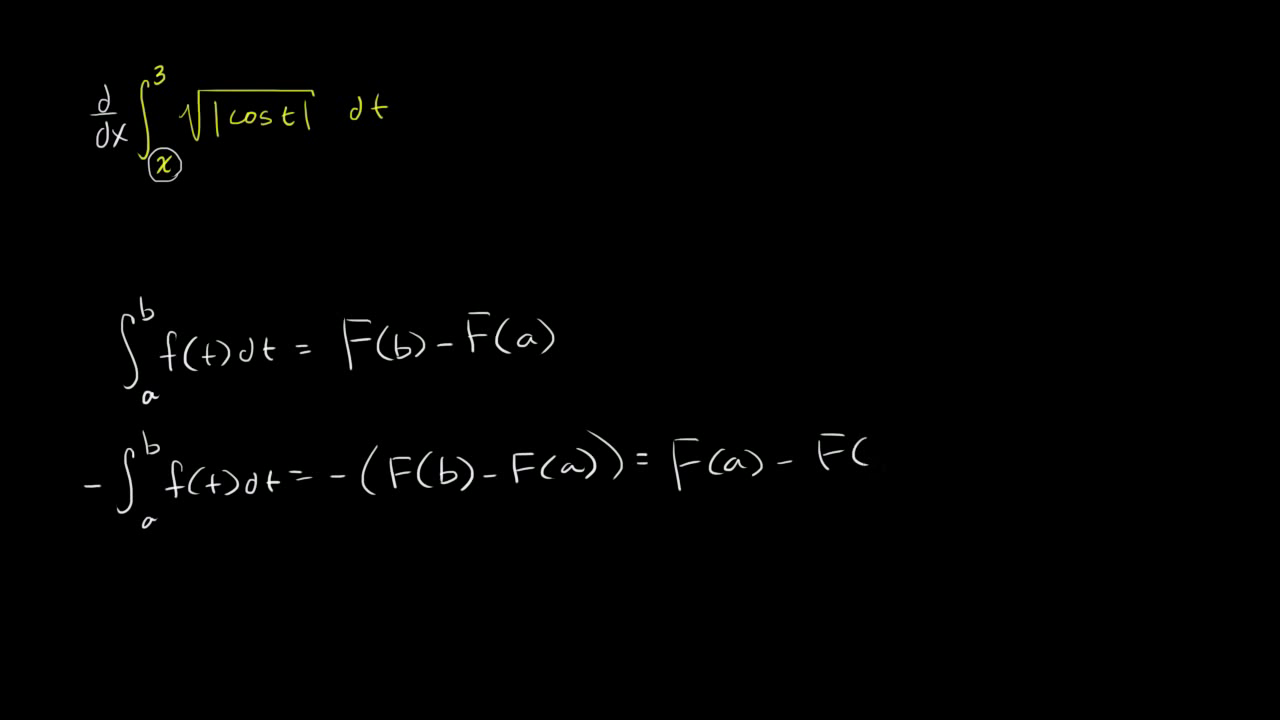 d/dx ∫_x^3 √|cos t| dt
∫_a^b f(t)dt = F(b) - F(a)
-∫_a^b f(t)dt = -(F(b) - F(a)) = F(a) - F(